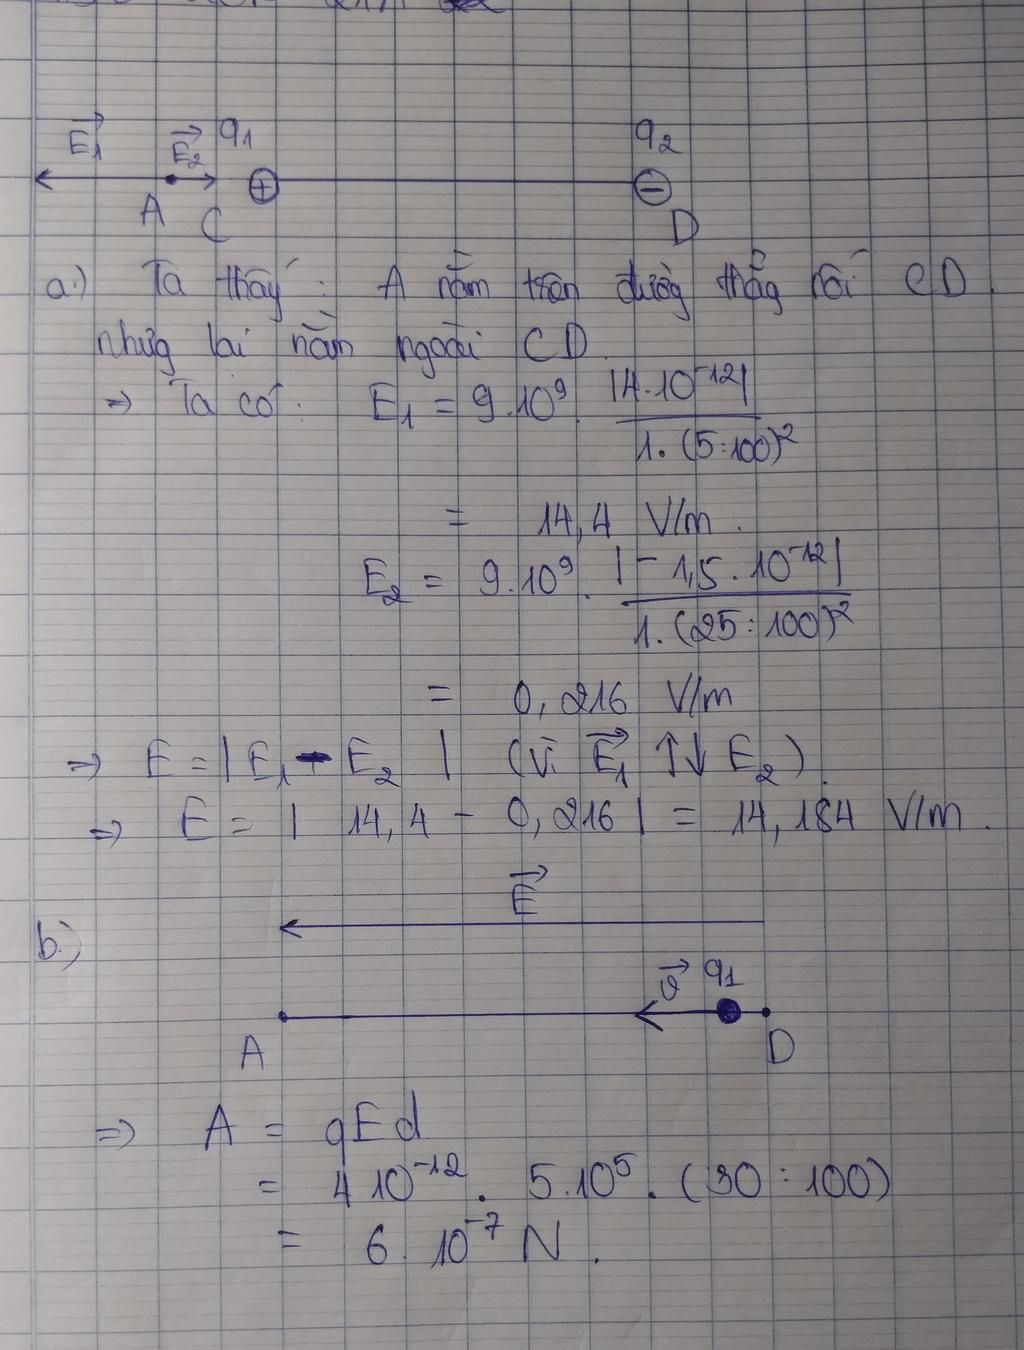 E₁→ E₂→ q₁ q₂
+ −
A C D
a.) Ta thấy : A nằm trên đường thẳg nối CD.
nhưg lại nằm ngoài CD.
→ Ta có: E₁ = 9.10⁹. |4.10⁻¹²| / 1.(5:100)²
= 14,4 V/m.
E₂ = 9.10⁹. |-1,5.10⁻¹²| / 1.(25:100)²
= 0,216 V/m
⇒ E = |E₁ - E₂ | (Vì E₁→ ↑↓ E₂).
⇒ E = | 14,4 - 0,216 | = 14,184 V/m.
E→
b.)
v→ q₁
A D
⇒ A = qEd
= 4.10⁻¹². 5.10⁵. (30:100)
= 6. 10⁻⁷ N.